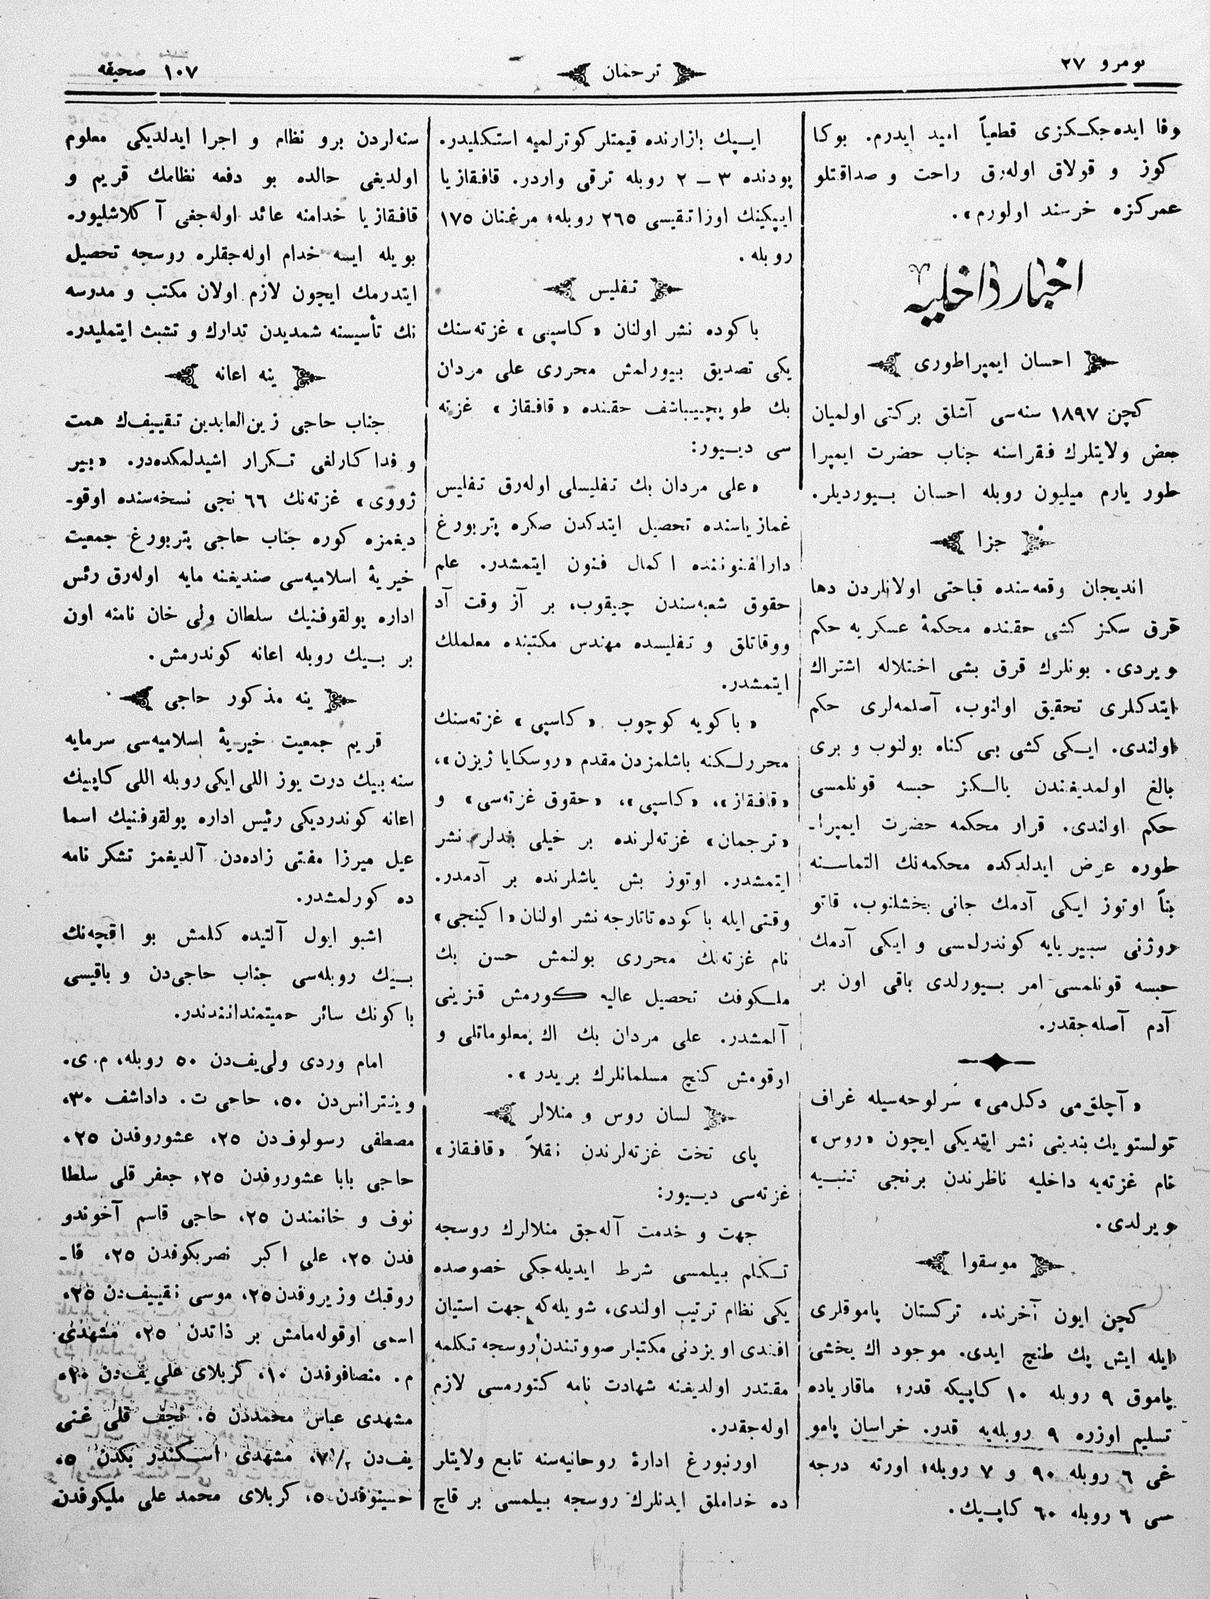 نومرو ٢٧
ترجمان
١٠٧ صحيفه
وفا ايده‌جككزى قطعياً اميد ايدرم. بوكا
كوز و قولاق اوله‌رق راحت و صداقتلو
عمركزه خرسند اولورم».
اخبار داخليه
احسان ايمپراطورى
كچن ١٨٩٧ سنه‌سى آشلق بركتى اولميان
بعض ولايتلرك فقراسنه جناب حضرت ايمپرا
طور يارم ميليون روبله احسان بيورديلر.
جزا
انديجان وقعه‌سنده قباحتى اولانلردن دها
قرق سكز كشى حقنده محكمۀ عسكريه حكم
ويردى. بونلرك قرق بشى اختلاله اشتراك
ايتدكلرى تحقيق اولنوب، آصلمه‌لرى حكم
اولندى. ايكى كشى بى كناه بولنوب و برى
بالغ اولمديغندن يالكز حبسه قونلمسى
حكم اولندى. قرار محكمه حضرت ايمپرا-
طوره عرض ايدلدكده محكمه‌نك التماسنه
بنأً اوتوز ايكى آدمك جانى بخشلنوب، قاتو
روژنى سيبيريايه كوندرلمسى و ايكى آدمك
حبسه قونلمسى امر بيورلدى باقى اون بر
آدم آصله‌جقدر.
«آچلق‌مى دكل‌مى» سرلوحه‌سيله غراف
تولستو يك بندينى نشر ايتديكى ايچون «روس»
نام غزته‌يه داخليه ناظرندن برنجى تنبيه
ويرلدى.
موسقوا
كچن ايون آخرنده، تركستان پاموقلرى
ايله ايش پك طنچ ايدى. موجود اك يخشى
پاموق ٩ روبله ١٠ كاپيكه قدر؛ ماقارياده
تسليم اوزره ٩ روبله‌يه قدر. خراسان پامو
غى ٦ روبله ٩٠ و ٧ روبله؛ اورته درجه
سى ٦ روبله ٦٠ كاپيك.
ايپك بازارنده قيمتلر كوترلميه استكليدر.
پودنده ٣ — ٢ روبله ترقى واردر. قافقازيا
ايپكينك اوزاتقيسى ٢٦٥ روبله؛ مرغنان ١٧٥
روبله.
تفليس
باكوده نشر اولنان «كاسپى» غزته‌سنك
يكى تصديق بيورلمش محررى على مردان
بك طوپچيباشف حقنده «قافقاز» غزته
سى دييور:
«على مردان بك تفليسلى اوله‌رق تفليس
غمازياسنده تحصيل ايتدكدن صكره پتربورغ
دارالفنوننده اكمال فنون ايتمشدر. علم
حقوق شعبه‌سندن چيقوب، بر آز وقت آد
ووقاتلق و تفليسده مهندس مكتبنده معلملك
ايتمشدر.
«باكويه كوچوب «كاسپى» غزته‌سنك
محررلكنه باشلمزدن مقدم «روسكايا ژيزن»،
«قافقاز»، «كاسپى»، «حقوق غزته‌سى» و
«ترجمان» غزته‌لرنده بر خيلى بندلر نشر
ايتمشدر. اوتوز بش ياشلرنده بر آدمدر.
وقتى ايله باكوده تاتارجه نشر اولنان «اكينجى»
نام غزته‌نك محررى بولنمش حسن بك
ملكوفك تحصيل عاليه كورمش قزينى
آلمشدر. على مردان بك اك معلوماتلى و
اوقومش كنچ مسلمانلرك بريدر».
لسان روس و منلالر
پاى تخت غزته‌لرندن نقلاً «قافقاز»
غزته‌سى دييور:
جهت و خدمت آله‌جق منلالرك روسجه
تكلم بيلمسى شرط ايديله‌جكى خصوصده
يكى نظام ترتيب اولندى، شويله‌كه جهت استيان
افندى اويزدنى مكتبلر صووتندن روسجه تكلمه
مقتدر اولديغنه شهادت نامه كتورمسى لازم
اوله‌جقدر.
اورنبورغ ادارۀ روحانيه‌سنه تابع ولايتلر
ده خداملق ايدنلرك روسجه بيلمسى بر قاچ
سنه‌لردن برو نظام و اجرا ايدلديكى معلوم
اولديغى حالده بو دفعه نظامك قريم و
قافقازيا خدامنه عائد اوله‌جغى آكلاشليور.
بويله ايسه خدام اوله‌جقلره روسجه تحصيل
ايتدرمك ايچون لازم اولان مكتب و مدرسه
نك تأسيسنه شمديدن تدارك و تشبث ايتمليدر.
ينه اعانه
جناب حاجى زين‌العابدين تقييفك همت
و فداكارلغى تكرار اشيدلمكده‌در. «بير
ژووى» غزته‌نك ٦٦ نجى نسخه‌سنده اوقو-
ديغمزه كوره جناب حاجى پتربورغ جمعيت
خيريۀ اسلاميه‌سى صنديغنه مايه اوله‌رق رئس
اداره پولقوفنيك سلطان ولى خان نامنه اون
بر بيك روبله اعانه كوندرمش.
ينه مذكور حاجى
قريم جمعيت خيريۀ اسلاميه‌سى سرمايه
سنه بيك درت يوز اللى ايكى روبله اللى كاپيك
اعانه كوندرديكى رئيس اداره پولقوفنيك اسما
عيل ميرزا مفتى زاده‌دن آلديغمز تشكر نامه
ده كورلمشدر.
اشبو ايول آلتيده كلمش بو اقچه‌نك
بيك روبله‌سى جناب حاجى‌دن و باقيسى
باكونك سائر حميتمندانندندر.
امام وردى ولى‌يف‌دن ٥٠ روبله، م.ى.
وينترانس‌دن ٥٠، حاجى ت. داداشف ٣٠،
مصطفى رسولوف‌دن ٢٥، عشوروفدن ٢٥،
حاجى بابا عشوروفدن ٢٥، جعفر قلى سلطا
نوف و خانمندن ٢٥، حاجى قاسم آخوندو
فدن ٢٥، على اكبر نصربكوفدن ٢٥، فا-
روقبك وزيروفدن ٢٥، موسى نقييف‌دن ٢٥،
اسمى اوقوله‌مامش بر ذاتدن ٢٥، مشهدى
م. منصافوفدن ١٠، كربلاى على‌يف‌دن ٢٠،
مشهدى عباس محمددن ٥، نجف قلى غنى
يف‌دن ٧١/٢، مشهدى اسكندر بكدن ٥،
حسينوفدن ٥، كربلاى محمد على مليكوفدن